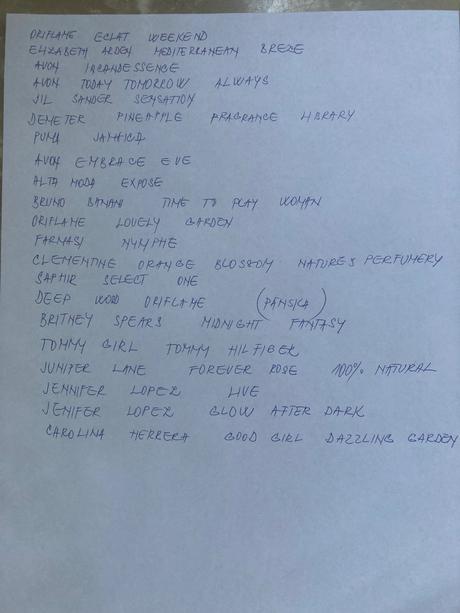 ORIFLAME ECLAT WEEKEND
ELIZABETH ARDEN MEDITERRANEAN BREZE
AVON INCANDESSENCE
AVON TODAY TOMORROW ALWAYS
JIL SANDER SENSATION
DEMETER PINEAPPLE FRAGRANCE LIBRARY
PUMA JAMAICA
AVON EMBRACE EVE
ALTA MODA EXPOSE
BRUNO BANANI TIME TO PLAY WOMAN
ORIFLAME LOVELY GARDEN
FARMASI NYMPHE
CLEMENTINE ORANGE BLOSSOM NATURES PERFUMERY
SAPHIR SELECT ONE
DEEP WOOD ORIFLAME (PÁNSKA)
BRITNEY SPEARS MIDNIGHT FANTASY
TOMMY GIRL TOMMY HILFIGER
JUNIPER LANE FOREVER ROSE 100% NATURAL
JENNIFER LOPEZ LIVE
JENIFER LOPEZ GLOW AFTER DARK
CAROLINA HERRERA GOOD GIRL DAZZLING GARDEN